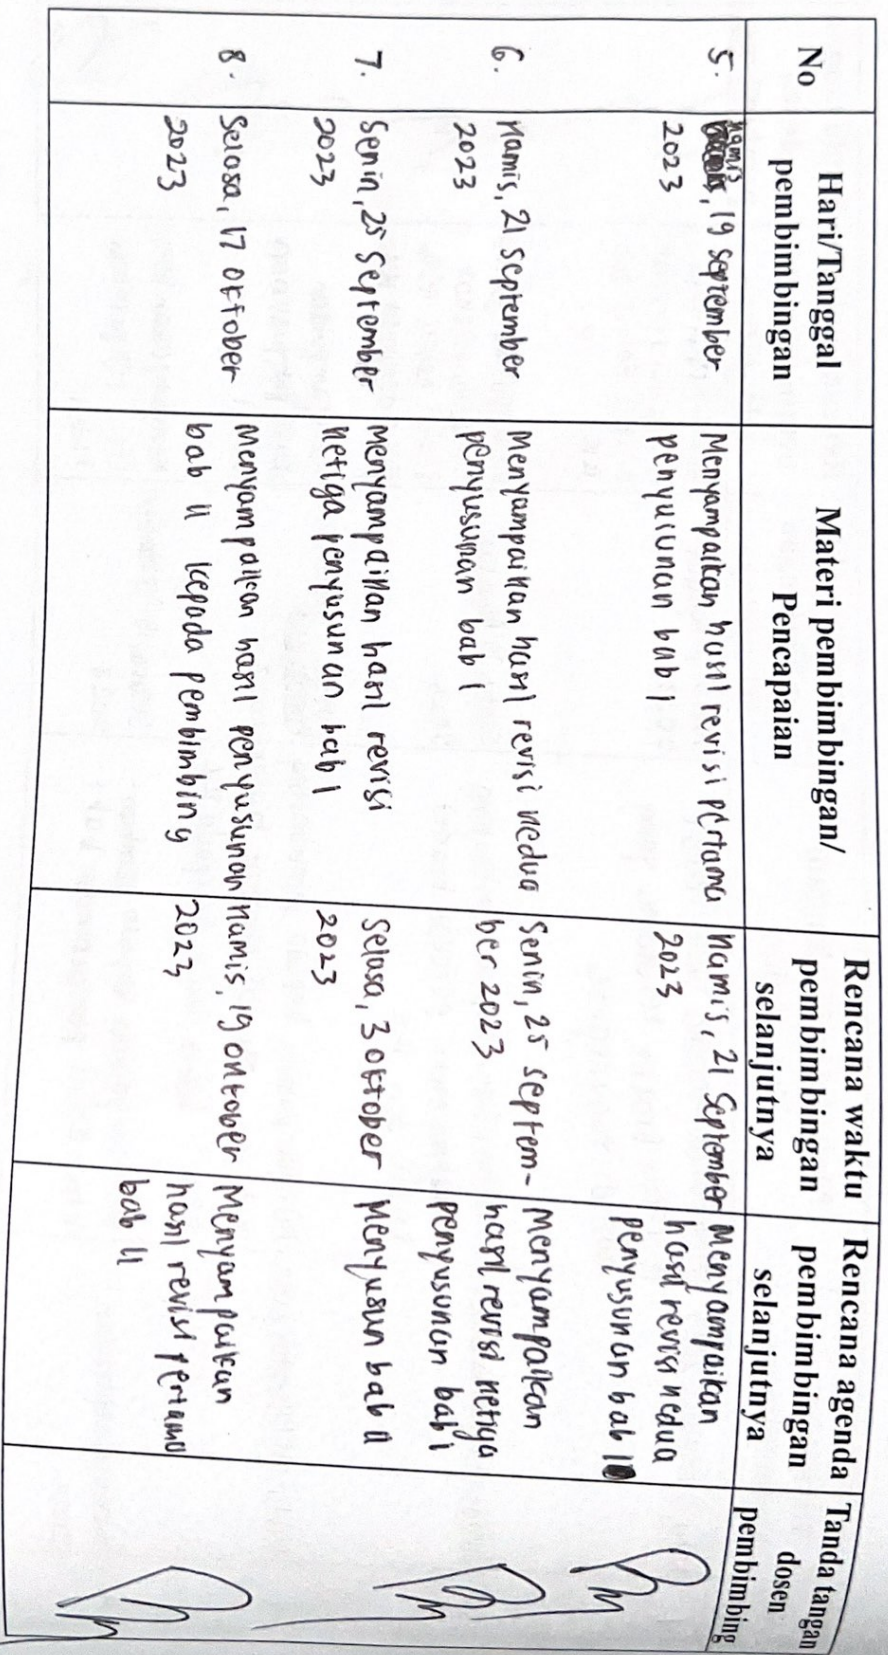 No
Hari/Tanggal
pembimbingan
Materi pembimbingan/
Pencapaian
Rencana waktu
pembimbingan
selanjutnya
Rencana agenda
pembimbingan
selanjutnya
Tanda tangan
dosen
pembimbing
5.
Kamis, 19 September
2023
Menyampaikan hasil revisi pertama
penyusunan bab I
Kamis, 21 September
2023
Menyampaikan
hasil revisi kedua
penyusunan bab I
6.
Kamis, 21 September
2023
Menyampaikan hasil revisi kedua
penyusunan bab I
Senin, 25 Septem-
ber 2023
Menyampaikan
hasil revisi ketiga
penyusunan bab I
7.
Senin, 25 September
2023
Menyampaikan hasil revisi
ketiga penyusunan bab I
Selasa, 3 Oktober
2023
Menyusun bab II
8.
Selasa, 17 Oktober
2023
Menyampaikan hasil penyusunan
bab II kepada pembimbing
Kamis, 19 Oktober
2023
Menyampaikan
hasil revisi pertama
bab II